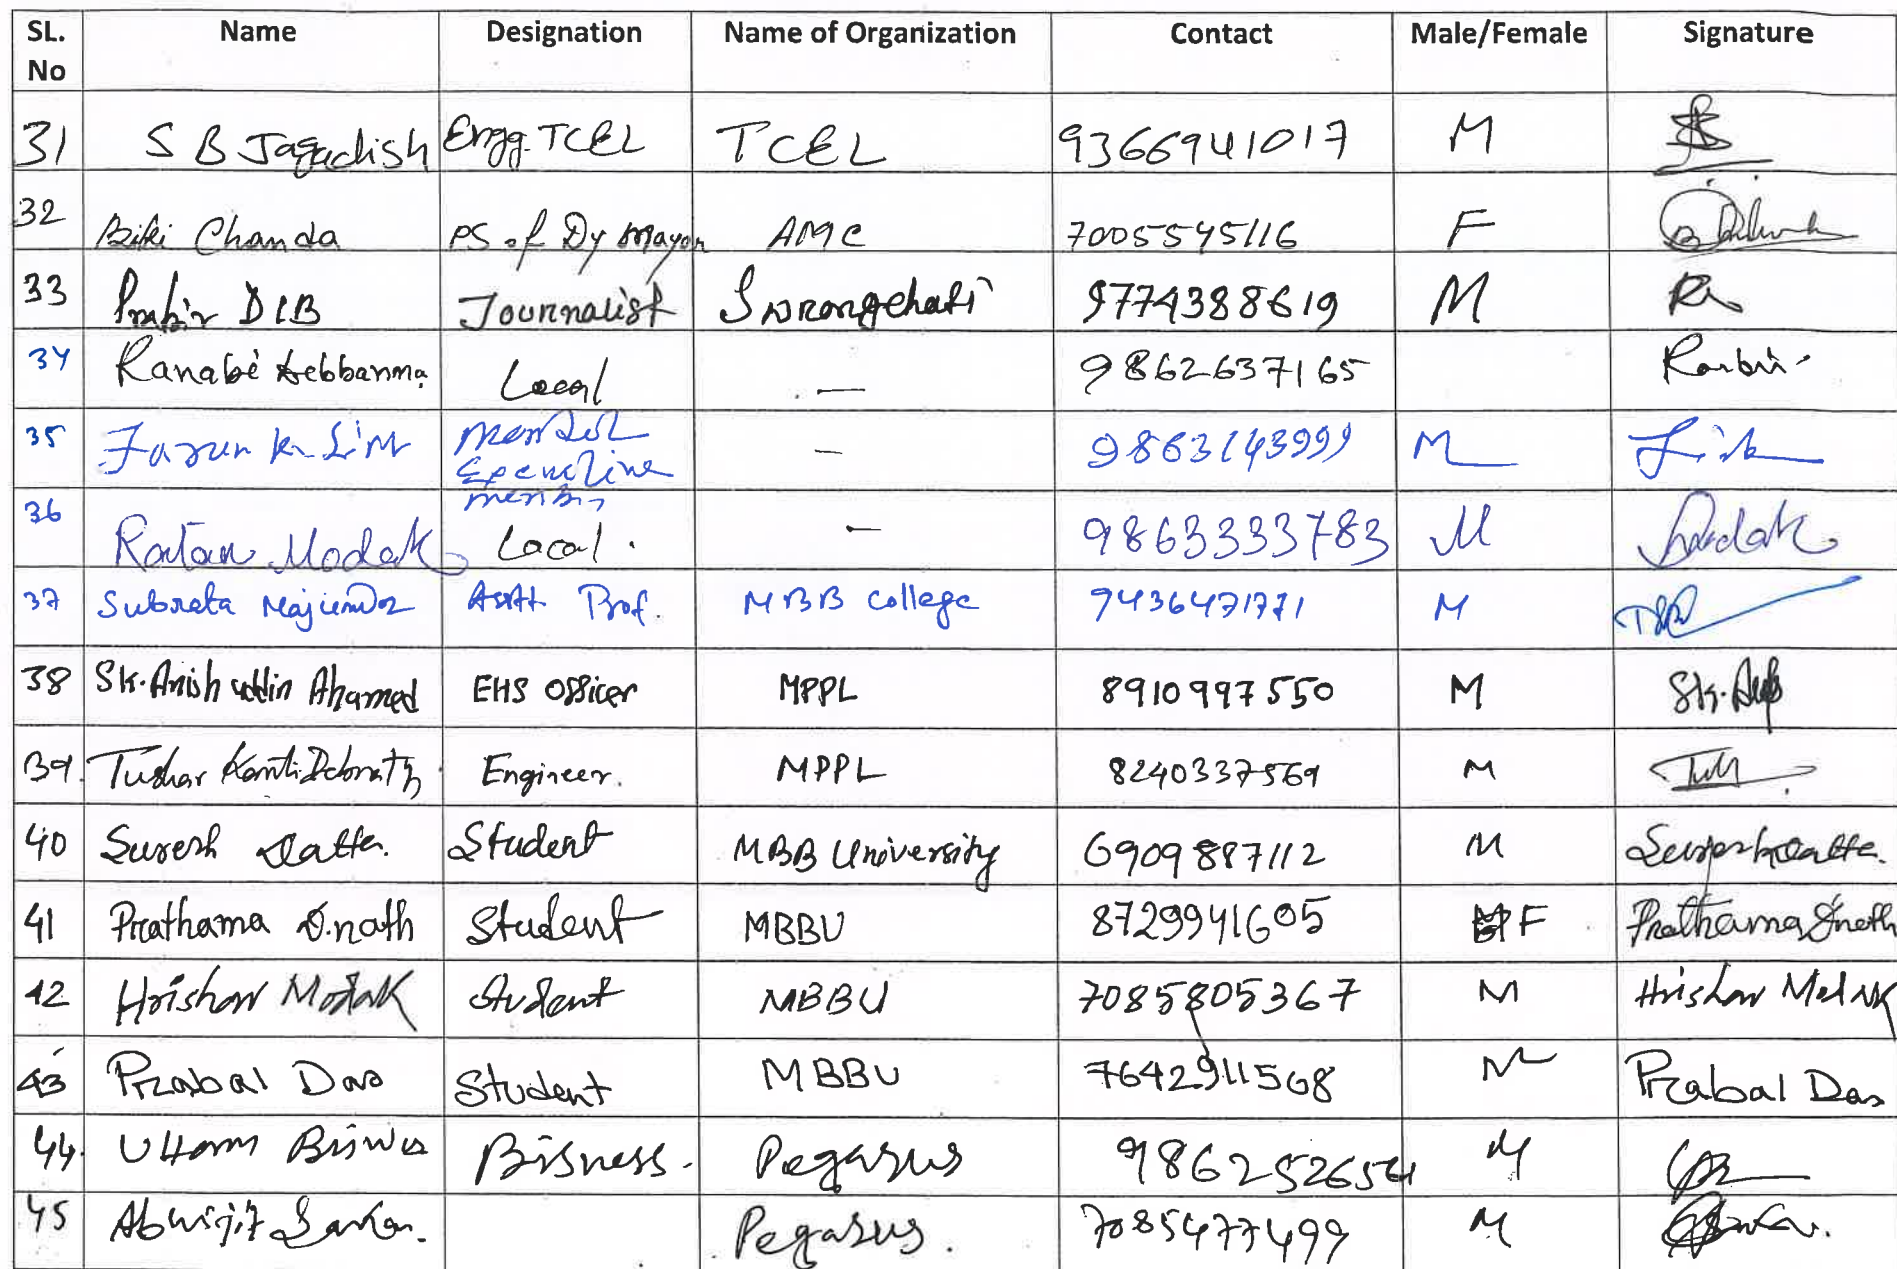 SL. No Name Designation Name of Organization Contact Male/Female Signature
31 S B Jagadish Engg. TCEL TCEL 9366941017 M
32 Biki Chanda PS of Dy Mayor AMC 7005545116 F
33 Prabir DEB Journalist 9774388619 M
34 Ranabir Debbarma Local — 9862637165
35 Executive — M
36 Ratan Modak Local . — 9863333783 M Modak
37 Subrata Majumdar Asstt. Prof. MBB College 9436471771 M
38 Sk. Anish uddin Ahamed EHS Officer MPPL 8910997550 M
39. Tushar Kanti Debnath Engineer. MPPL 8240337569 M
40 Suresh Datta. Student MBB University 6909887112 M Suresh Datta.
41 Prathama D.nath Student MBBU 8729941605 F Prathama Dnath
42 Hrishav Modak Student MBBU 7085805367 M Hrishav Modak
43 Prabal Das Student MBBU M Prabal Das
44. Uttam Biswas Bisness. Pegasus M
45 Abhijit Sarkar. Pegasus. 7085477499 M